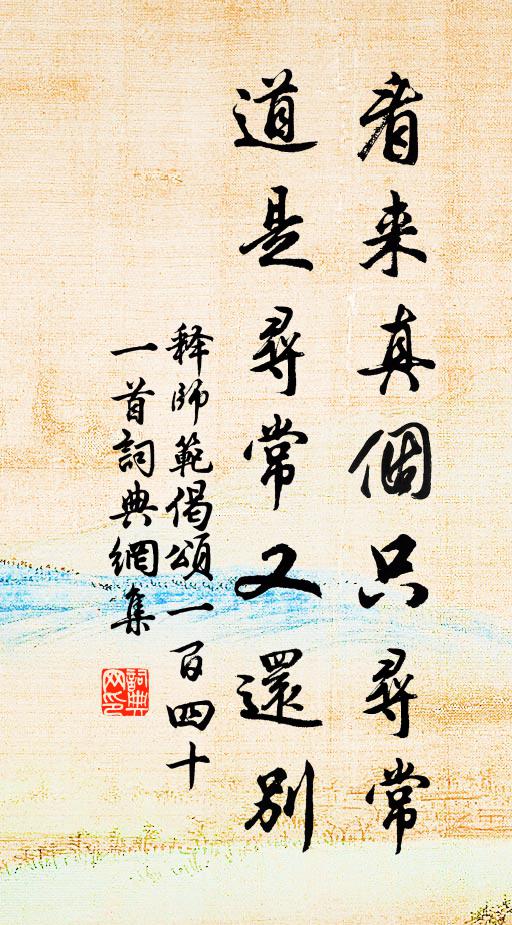 看来真個只尋常
道是尋常又還別
释師範偈頌一百四十
一首詞典網集
詞典
网印